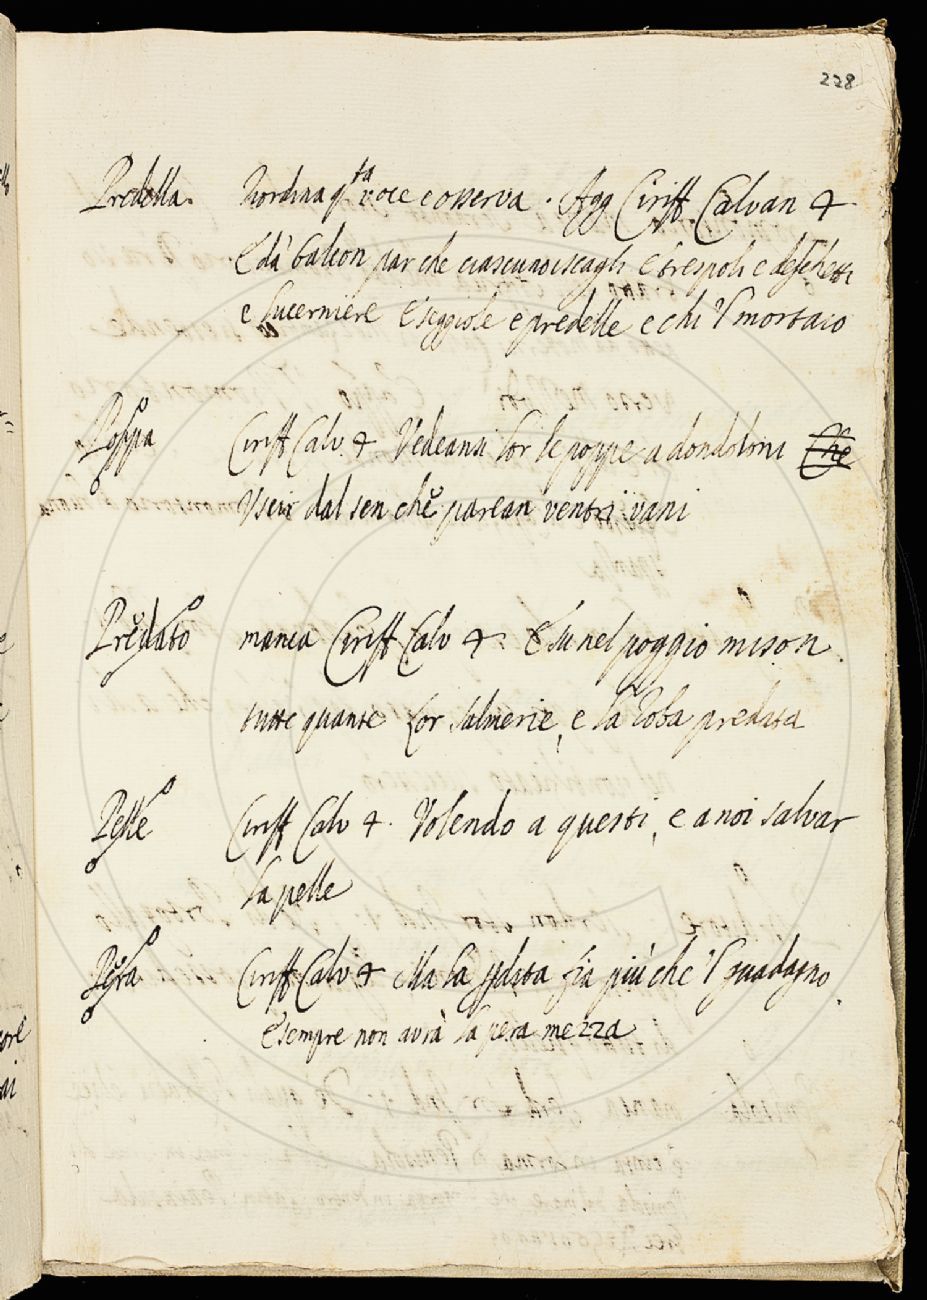 228
Predella. Riordina q.ta voce e osserva. Agg Ciriff Calvan 4
E dà balcon par che ciascuno iscagli E trespoli e deschetti
e lucerniere E seggiole e predelle e chi 'l mortaio
Poppa Ciriff Calv. 4 Vedeansi lor le poppe a dondoloni Che
Uscir dal sen che parean ventri vani
Predato manca Ciriff Calv 4 E su nel poggio mison
tutte quante Lor salmerie, e la roba predata
Pelle Ciriff Calv 4. Volendo a questi, e a noi salvar
la pelle
Pera Ciriff Calv 4 Ma la fia più che 'l guadagno
E sempre non avrà la pera mezza